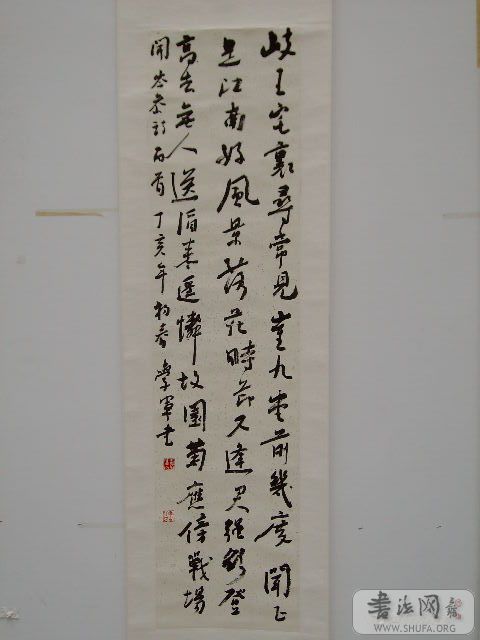 岐王宅裏尋常見崔九堂前幾度聞正
是江南好風景落花時節又逢君強欲登
高去無人送酒來遥憐故園菊應傍戰場
開岑参詩首丁亥年初春學軍書
書法网
WWW.SHUFA.ORG